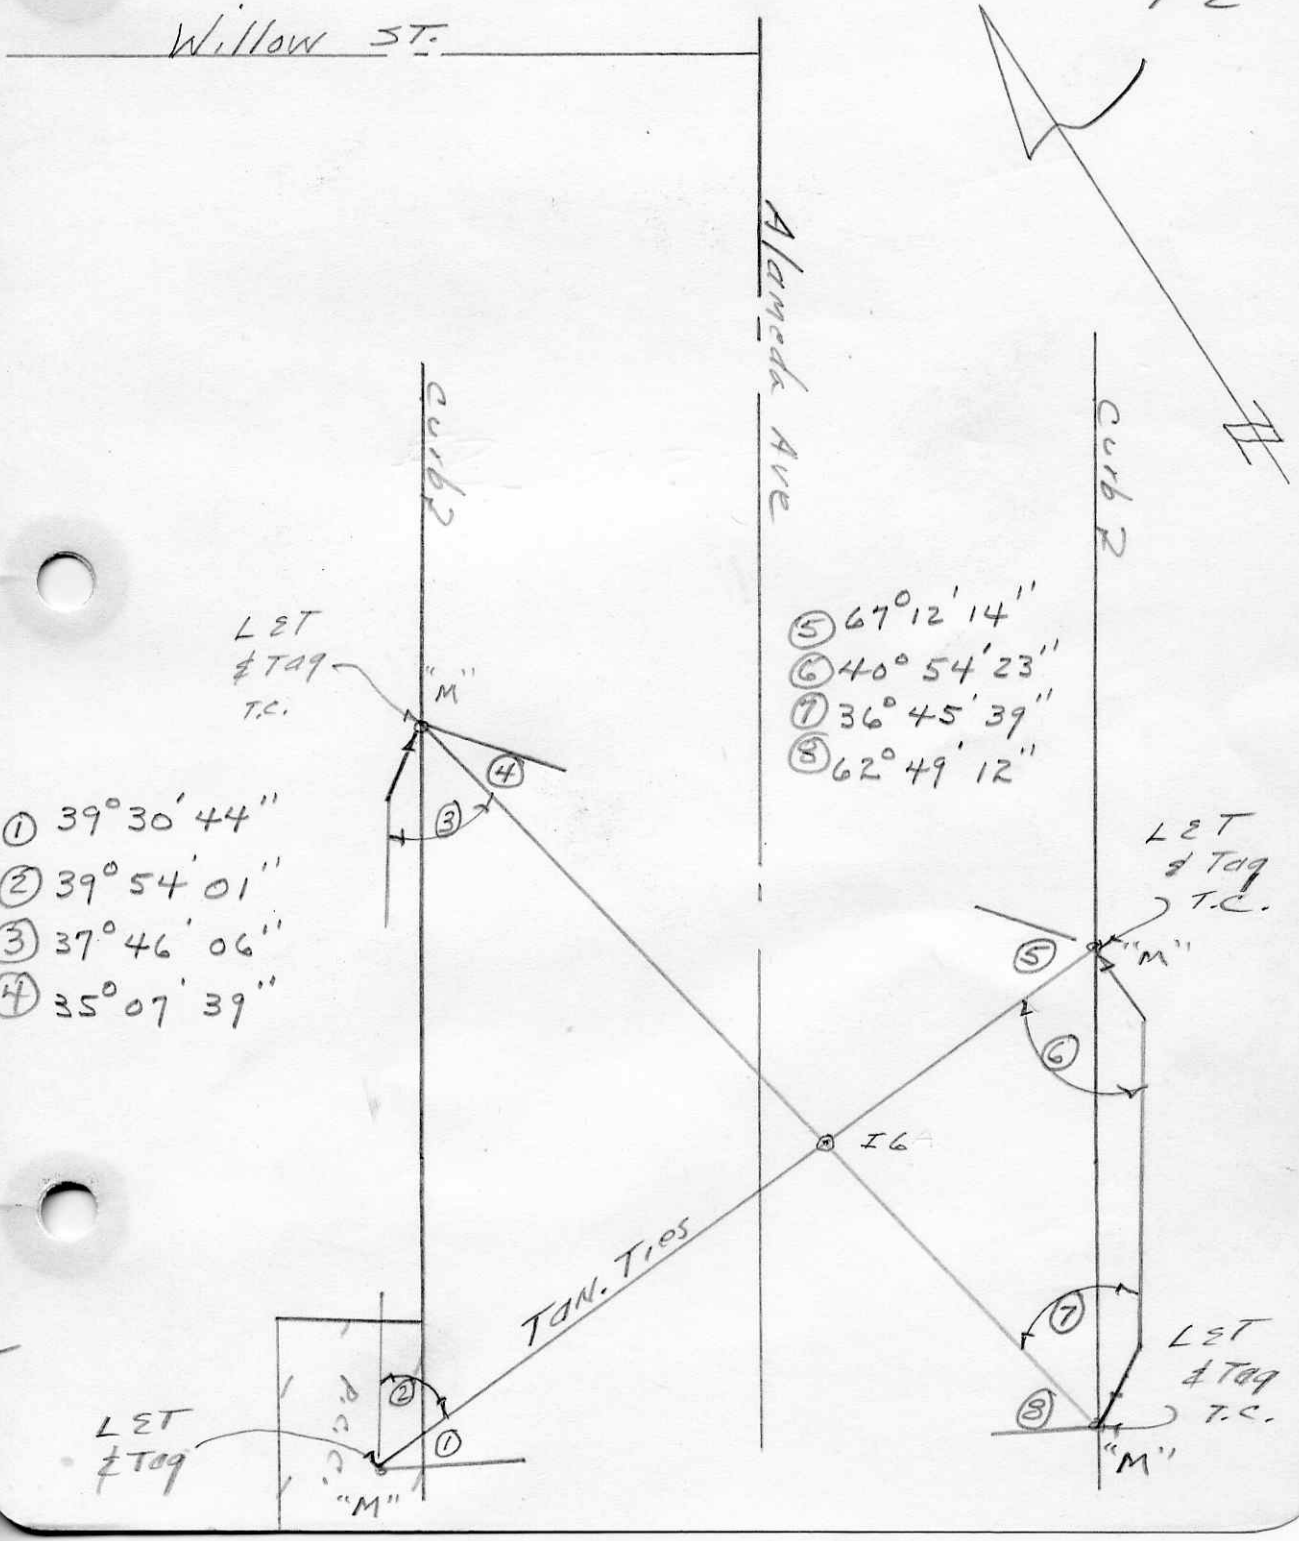 Willow ST.
Alameda Ave
Curb
Curb
L&T
& Tag
T.C.
"M"
④
③
⑤ 67° 12' 14"
⑥ 40° 54' 23"
⑦ 36° 45' 39"
⑧ 62° 49' 12"
① 39° 30' 44"
② 39° 54' 01"
③ 37° 46' 06"
④ 35° 07' 39"
L&T
& Tag
T.C.
"M"
⑤
⑥
I6
TAN. Ties
⑦
⑧
L&T
& Tag
T.C.
"M"
②
①
P.C.C.
L&T
& Tag
"M"